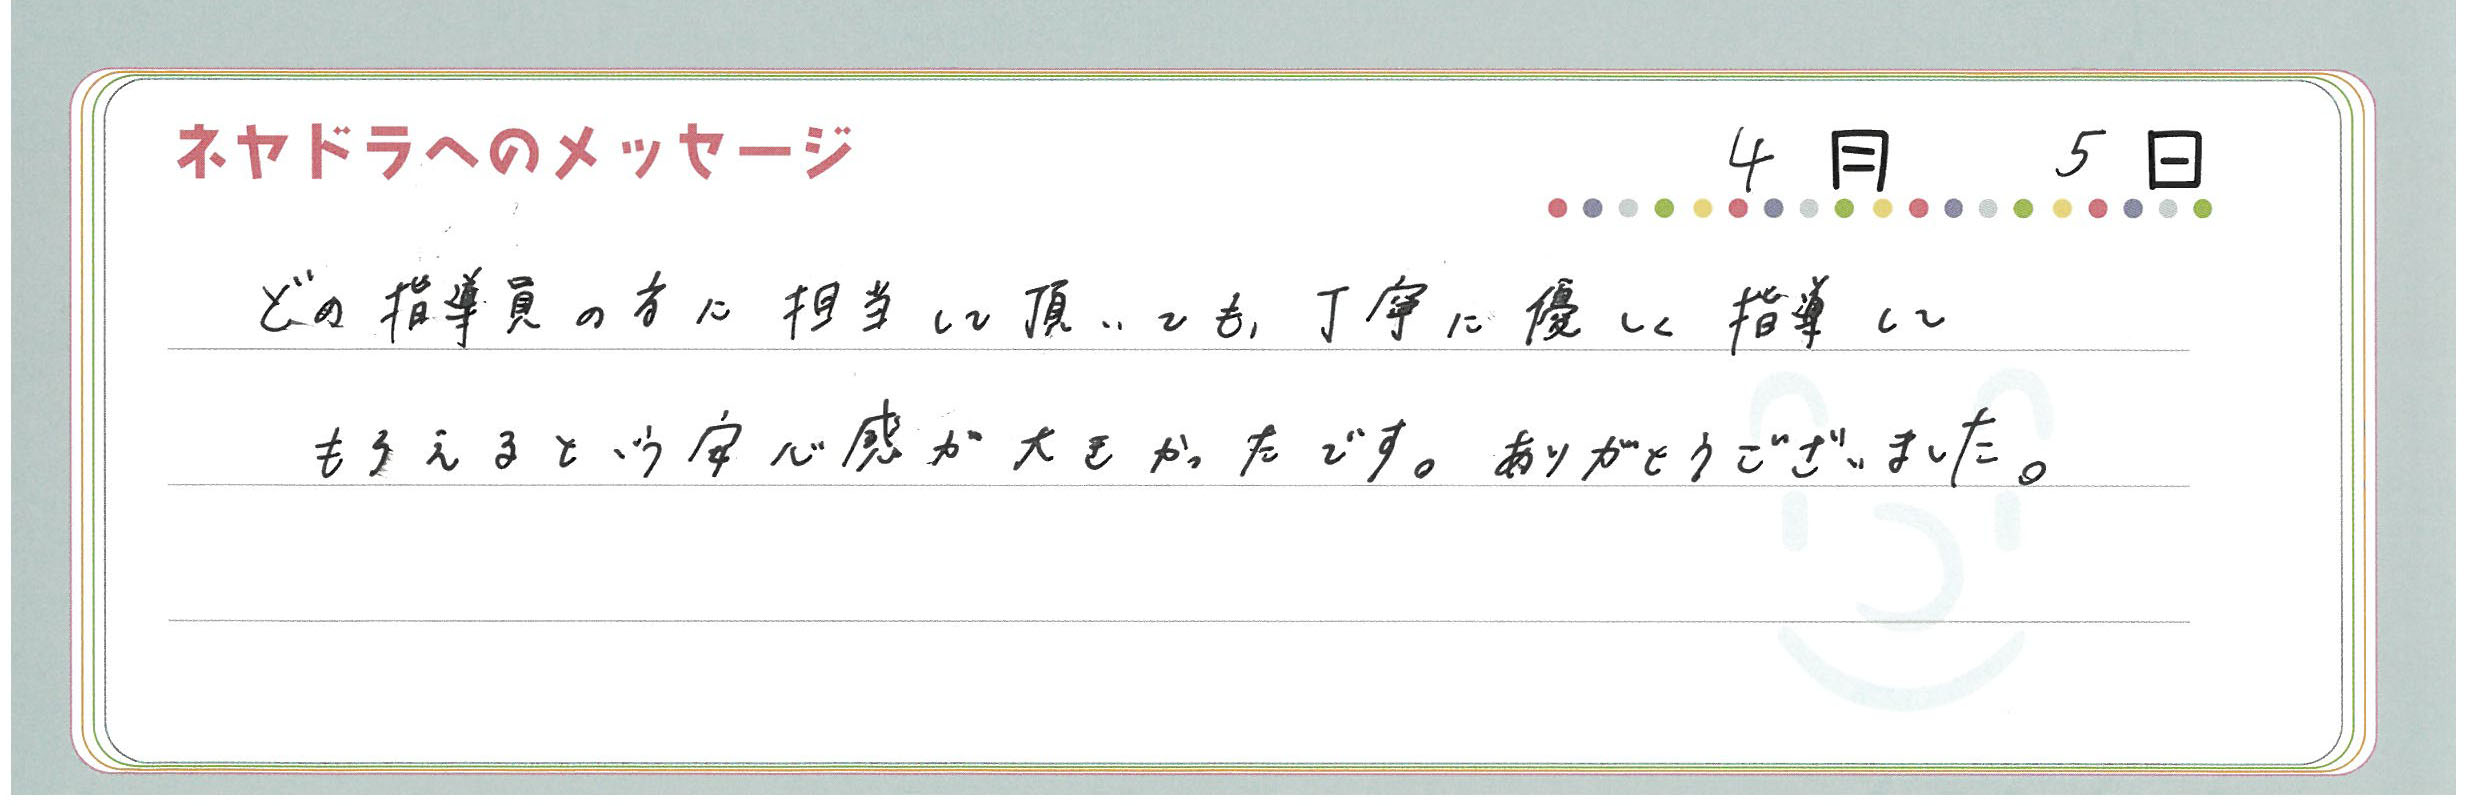 ネヤドラへのメッセージ
4月 5日
どの指導員の方に担当して頂いても、丁寧に優しく指導して
もらえるという安心感が大きかったです。ありがとうございました。